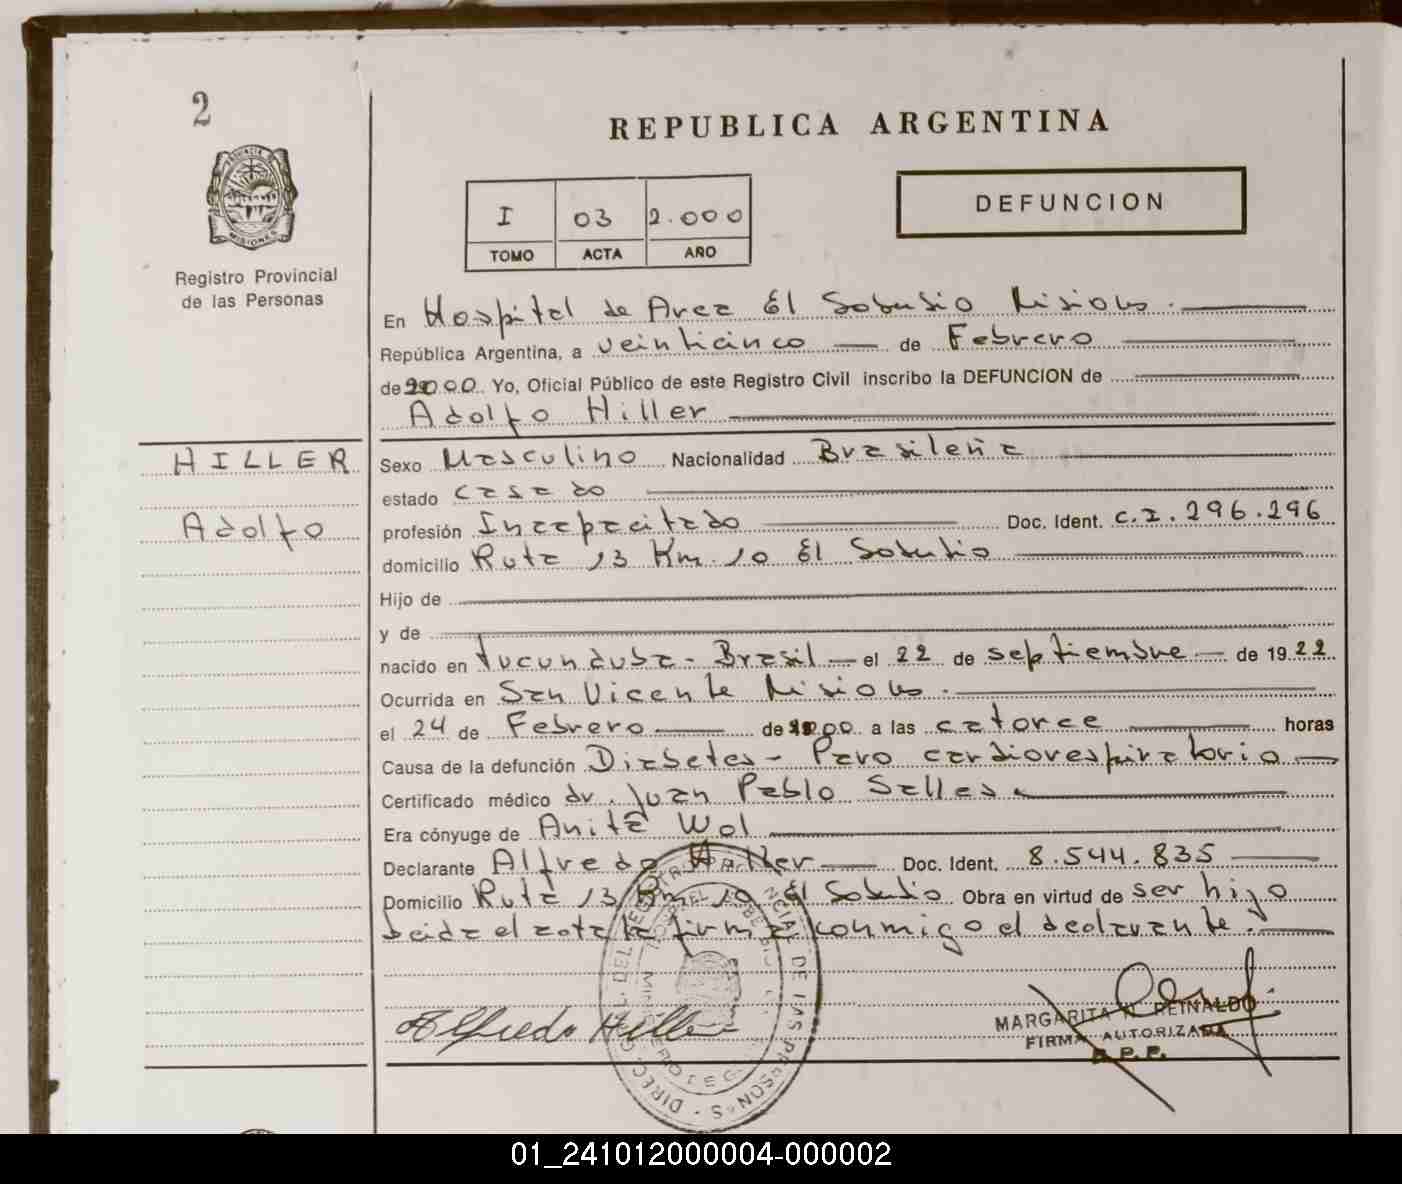 2
REPUBLICA ARGENTINA
PROVINCIA D
MISIONES
I 03 2.000
TOMO ACTA AÑO
DEFUNCION
Registro Provincial
de las Personas
En Hospital de Area El Soberbio Misiones.
República Argentina, a veinticinco de Febrero
de 2000. Yo, Oficial Público de este Registro Civil inscribo la DEFUNCION de
Adolfo Hiller
HILLER
Adolfo
Sexo Masculino Nacionalidad Brasileña
estado casado
profesión Incapacitado Doc. Ident. C.I. 296.296
domicilio Ruta 13 Km. 10 El Soberbio
Hijo de
y de
nacido en Tucunduba - Brasil - el 22 de septiembre de 1922
Ocurrida en San Vicente Misiones.
el 24 de Febrero de 2000 a las catorce horas
Causa de la defunción Diabetes - Paro cardiorespiratorio
Certificado médico dr. Juan Pablo Salles
Era cónyuge de Anita Wol
Declarante Alfredo Hiller Doc. Ident. 8.544.835
Domicilio Ruta 13 Km 10 El Soberbio Obra en virtud de ser hijo
Leida el acta la firma conmigo el declarante.
Alfredo Hiller
DIREC. GRAL. DEL REGISTRO PROVINCIAL DE LAS PERSONAS
MARGARITA N. REINALDO
FIRMA AUTORIZADA
R.P.P.
01_241012000004-000002